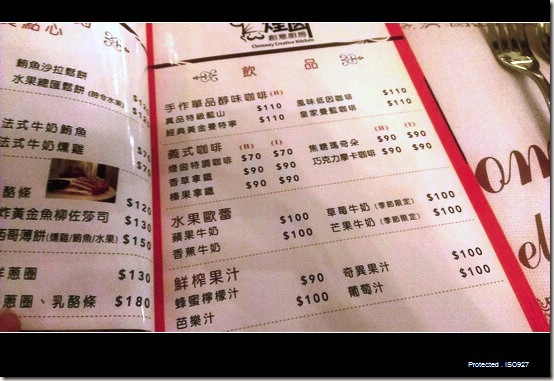 點心
鮪魚沙拉鬆餅
水果總匯鬆餅(時令水果) $120
法式牛奶鮪魚 $70
法式牛奶燻雞 $70
酪條 $120
炸黃金魚柳佐莎司 $130
西哥薄餅(燻雞/鮪魚/水果) $150
洋蔥圈 $130
蔥圈、乳酪條 $180
煙囪
創意廚房
Chimney Creative Kitchen
飲品
手作單品醇味咖啡(H)
真品特級藍山 $110 風味低因咖啡 $110
經典黃金曼特寧 $110 皇家曼藍咖啡 $110
義式咖啡 (H) (I) (H) (I)
煙囪特調咖啡 $70 $70 焦糖瑪奇朵 $90 $90
香草拿鐵 $90 $90 巧克力摩卡咖啡 $90 $90
榛果拿鐵 $90 $90
水果歐蕾
蘋果牛奶 $100 草莓牛奶(季節限定) $100
香蕉牛奶 $100 芒果牛奶(季節限定) $100
鮮榨果汁
蜂蜜檸檬汁 $90 奇異果汁 $100
芭樂汁 $100 葡萄汁 $100
Protected . ISO927